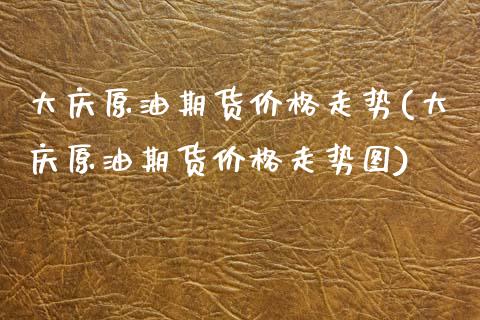 大庆原油期货价格走势(大
庆原油期货价格走势图)